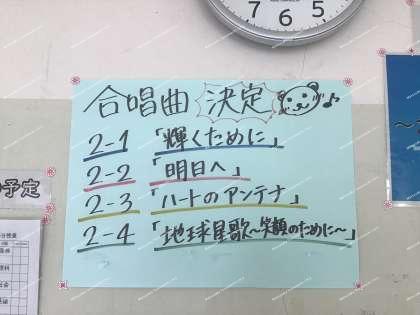 7 6 5
合唱曲 決定
2-1 「輝くために」
2-2 「明日へ」
2-3 「ハートのアンテナ」
2-4 「地球星歌~笑顔のために~」
予定